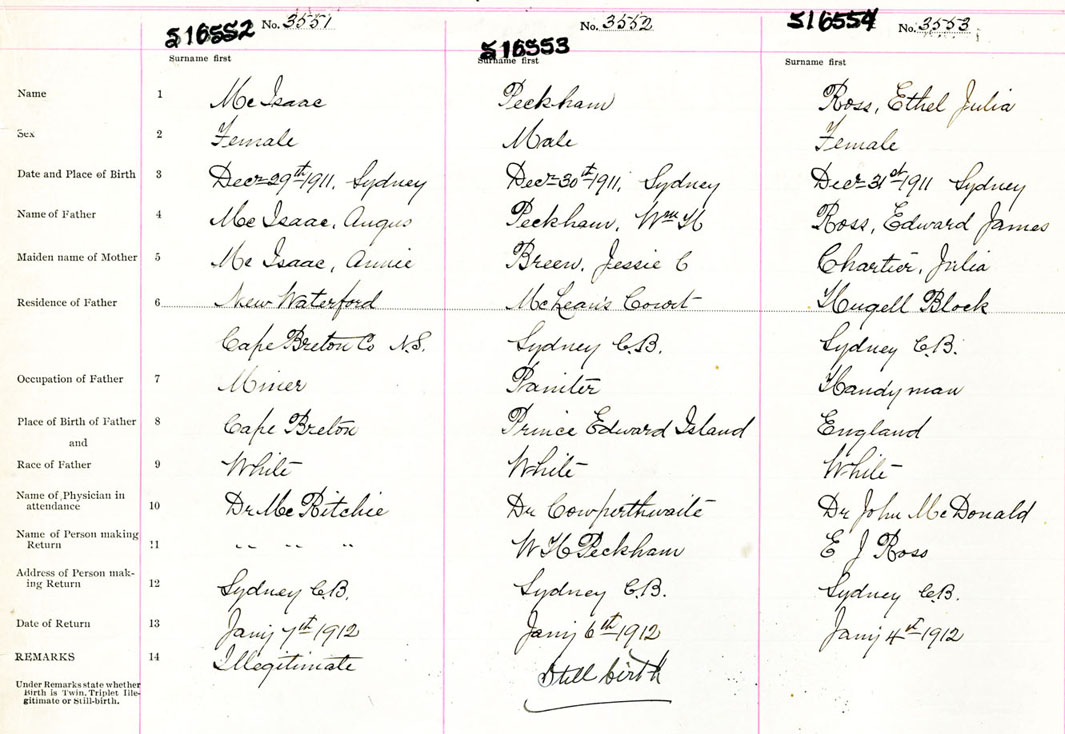 516552 No. 3551 No. 3552 516554 No. 3553
516553
Surname first Surname first Surname first
Name 1 Mc Isaac Peckham Ross, Ethel Julia
Sex 2 Female Male Female
Date and Place of Birth 3 Decr 29th 1911, Sydney Decr 30th 1911, Sydney Decr 31st 1911 Sydney
Name of Father 4 Mc Isaac, Angus Peckham, Wm H Ross, Edward James
Maiden name of Mother 5 Mc Isaac, Annie Breen, Jessie C Chartier, Julia
Residence of Father 6 New Waterford McLean's Court Hugell Block
Cape Breton Co N.S. Sydney C.B. Sydney C.B.
Occupation of Father 7 Miner Painter Handyman
Place of Birth of Father 8 Cape Breton Prince Edward Island England
and
Race of Father 9 White White White
Name of Physician in
attendance 10 Dr Mc Ritchie Dr Cowperthwaite Dr John McDonald
Name of Person making
Return 11 " " " W H Peckham E J Ross
Address of Person mak-
ing Return 12 Sydney C.B. Sydney C.B. Sydney C.B.
Date of Return 13 Jany 7th 1912 Jany 6th 1912 Jany 4st 1912
REMARKS 14 Illegitimate Still birth
Under Remarks state whether
Birth is Twin, Triplet Ille-
gitimate or Still-birth.